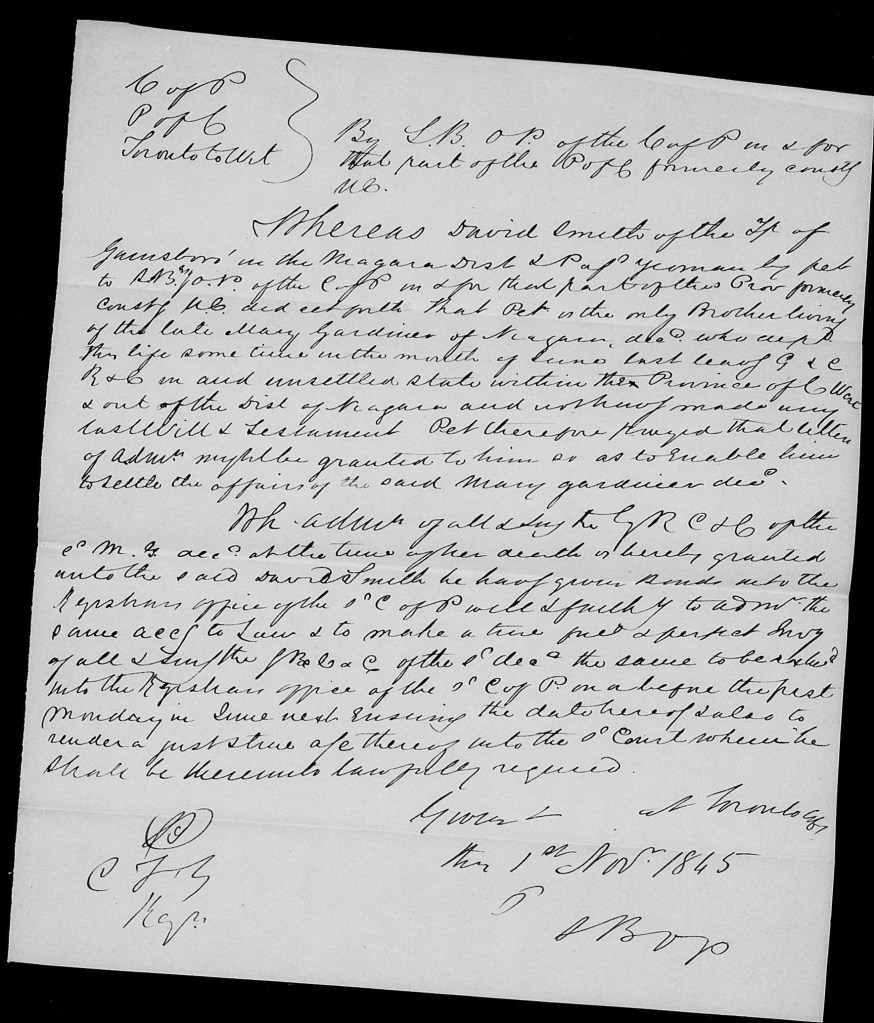 C of P
P of C
Toronto to Wit
By S.B. O P. of the C of P in & for
that part of the P of C formerly constg
UC.
Whereas David Smith of the Tp of
Gainsboro' in the Niagara Dist & P afd yeoman by pet
to S.B. O.P. of the C of P in & for that part of this Prov formerly
constg U.C. did set forth that Pet is the only Brother living
of the late Mary Gardiner of Niagara, decd. who depd
this life some time in the month of June last leavg G & C
R & C in and unsettled state within the Province of C West
& out of the Dist of Niagara and not havg made any
last Will & Testament Pet therefore prayed that letters
of Admn might be granted to him so as to Enable him
to settle the affairs of the said Mary Gardiner decd.
Wh. Admn of all & sing the G R C & C of the
sd M. G. decd. at the time of her death is hereby granted
unto the said David Smith he havg given Bonds into the
Registrars office of the sd C of P well & faithy to admr. the
same accg to Law & to make a true full & perfect Invy
of all & sing the G R C & C of the sd decd the same to be exhd
into the Registrars office of the sd C of P. on or before the first
Monday in June next Ensuing the date hereof & also to
render a just & true a/c thereof into the sd Court when he
shall be thereunto lawfully required.
Given at Toronto
this 1st Novr. 1845
C
Regr.
S B O P